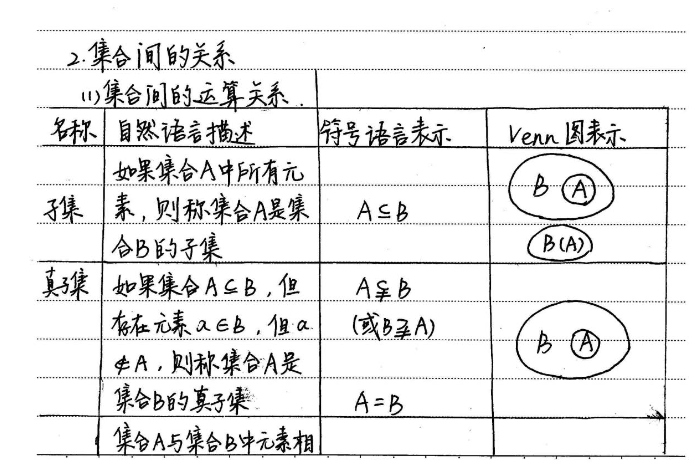 2.集合间的关系
(1)集合间的运算关系.
名称 自然语言描述 符号语言表示 Venn图表示
如果集合A中所有元
B A
子集 素,则称集合A是集 A⊆B
合B的子集 B(A)
真子集 如果集合A⊆B,但 A⫋B
存在元素a∈B,但a (或B⫌A)
B A
∉A,则称集合A是
集合B的真子集 A=B
集合A与集合B中元素相